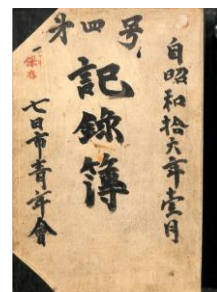 第四号
自昭和拾六年壹月
記録簿
七日市青年會